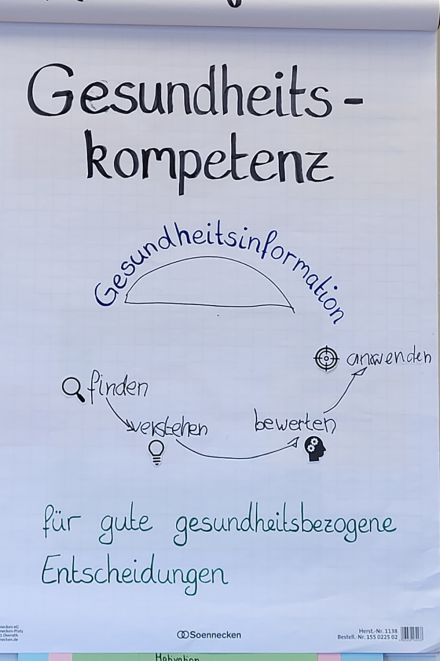 Gesundheits-
kompetenz
Gesundheitsinformation
finden
verstehen
bewerten
anwenden
für gute gesundheitsbezogene
Entscheidungen
Soennecken
Herst.-Nr. 1138
Bestell. Nr. 155 0225 02
Motivation